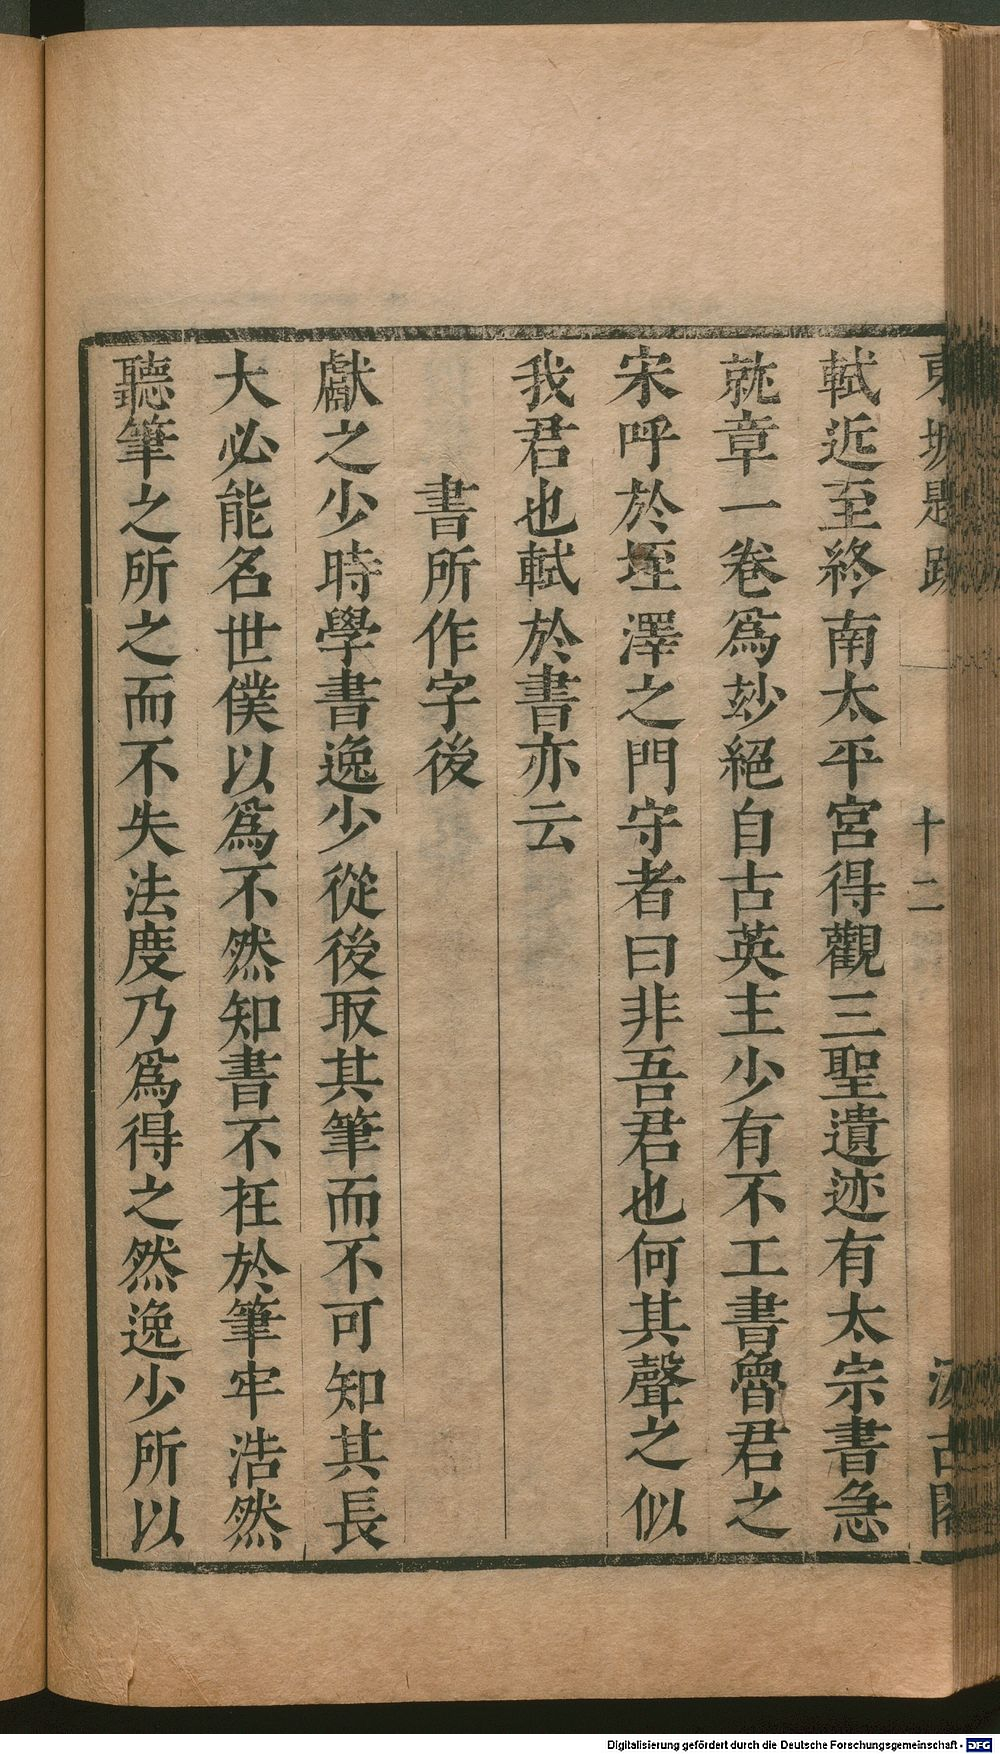 東坡題跋 十二 汲古閣
軾近至終南太平宮得觀三聖遺迹有太宗書急
就章一卷爲玅絕自古英主少有不工書魯君之
宋呼於垤澤之門守者曰非吾君也何其聲之似
我君也軾於書亦云
書所作字後
獻之少時學書逸少從後取其筆而不可知其長
大必能名世僕以爲不然知書不在於筆牢浩然
聽筆之所之而不失法度乃爲得之然逸少所以
Digitalisierung gefördert durch die Deutsche Forschungsgemeinschaft - DFG